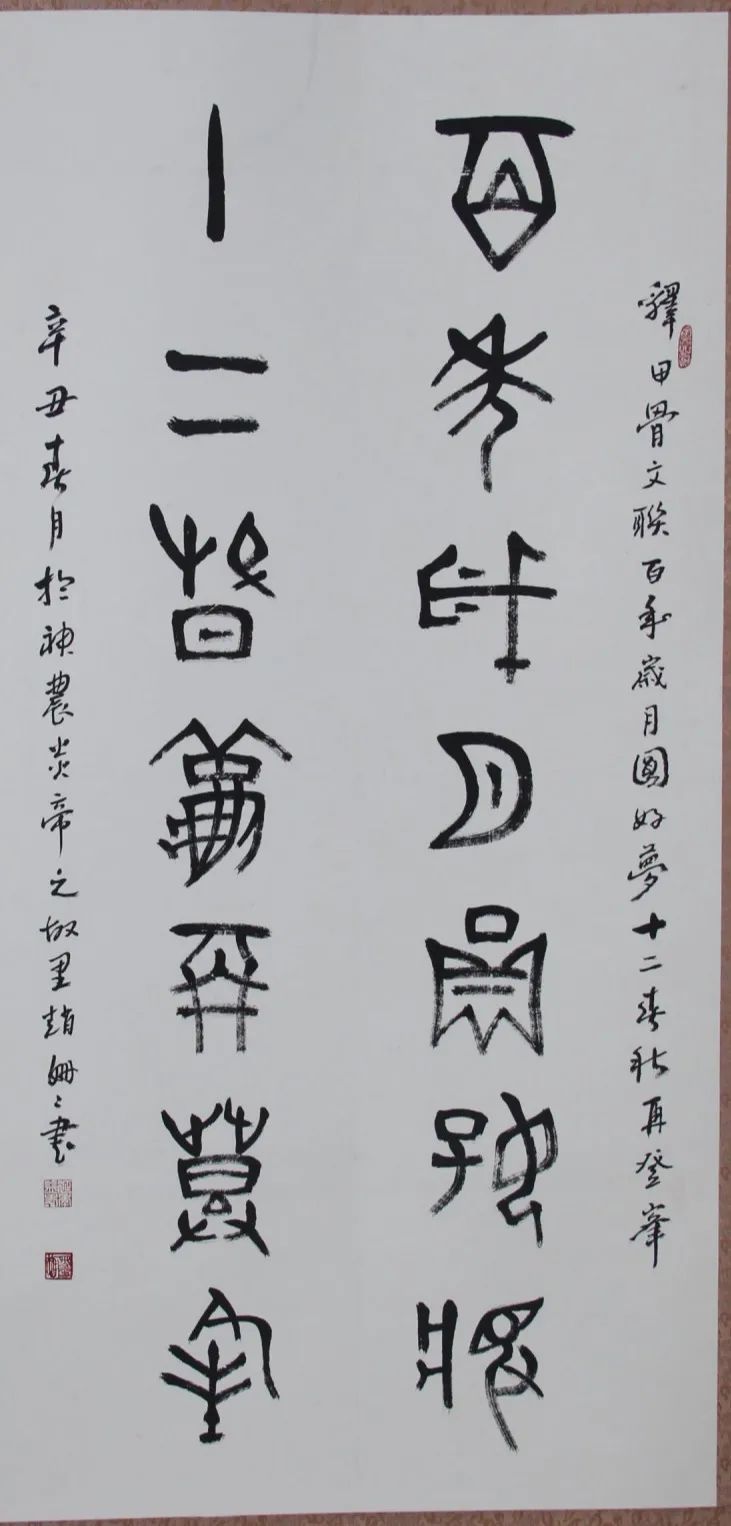 釋甲骨文聯百年歲月圓好夢十二春秋再登峯
百年歲月圓好夢
十二春秋再登峯
辛丑春月於神農炎帝之故里趙姍々書